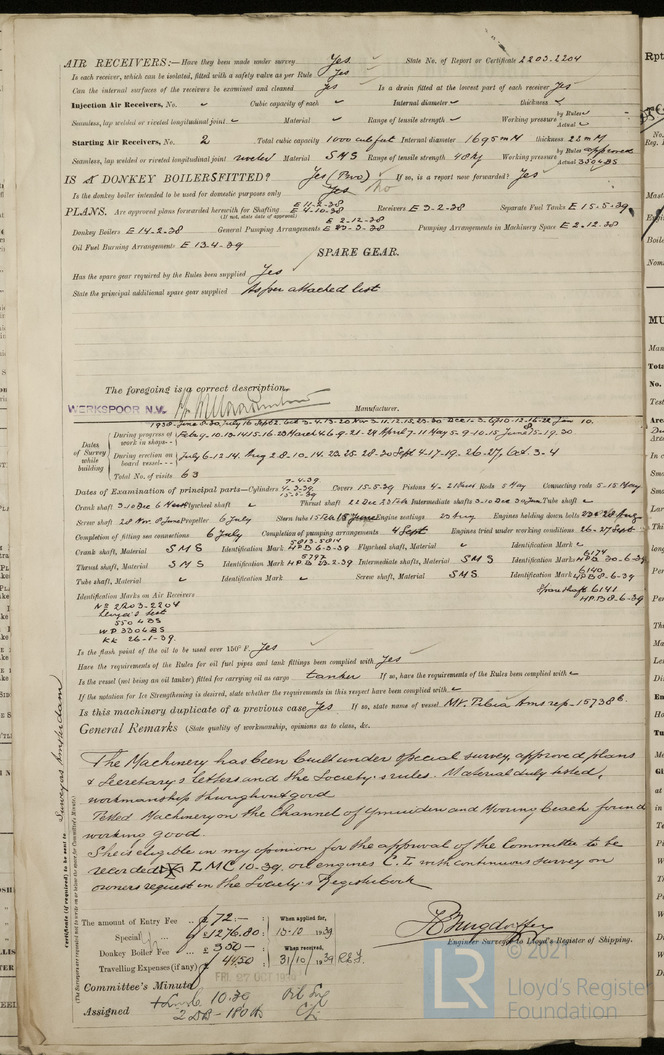 AIR RECEIVERS:—Have they been made under survey Yes State No. of Report or Certificate 2203.2204
Is each receiver, which can be isolated, fitted with a safety valve as per Rule Yes
Can the internal surfaces of the receivers be examined and cleaned Yes Is a drain fitted at the lowest part of each receiver Yes
Injection Air Receivers, No. Cubic capacity of each Internal diameter thickness
Seamless, lap welded or riveted longitudinal joint Material Range of tensile strength Working pressure by Rules Actual
Starting Air Receivers, No. 2 Total cubic capacity 1000 cub feet Internal diameter 1695 mM thickness 23 mM
Seamless, lap welded or riveted longitudinal joint Material SMS Range of tensile strength Working pressure by Rules approved Actual
IS A DONKEY BOILERS FITTED? Yes (Two) If so, is a report now forwarded? Yes
Is the donkey boiler intended to be used for domestic purposes only Yes No
PLANS. Are approved plans forwarded herewith for Shafting E 11-2-38 E 4-10-38 Receivers E 3-2-38 Separate Fuel Tanks E 15-5-39
(If not, state date of approval)
Donkey Boilers E 14-2-38 General Pumping Arrangements E 2-12-38 Pumping Arrangements in Machinery Space E 2-12-38
Oil Fuel Burning Arrangements E 13-4-39
SPARE GEAR.
Has the spare gear required by the Rules been supplied Yes
State the principal additional spare gear supplied As per attached list
The foregoing is a correct description,
WERKSPOOR N.V. Manufacturer.
Dates of Survey while building
During progress of work in shops--
During erection on board vessel---
Total No. of visits 63
Dates of Examination of principal parts—Cylinders 7-4-39 Covers 15-5-39 Pistons Rods 5 May Connecting rods 5-15 May
Crank shaft Flywheel shaft Thrust shaft 22 Dec 23 Feb Intermediate shafts 3-10 Dec 30 Jun Tube shaft
Screw shaft 28 Nov. 8 June Propeller 6 July Stern tube 15 Feb 15 June Engine seatings 23 Aug Engines holding down bolts 28 Aug
Completion of fitting sea connections 6 July Completion of pumping arrangements 4 Sept Engines tried under working conditions 26-27 Sept
Crank shaft, Material SMS Identification Mark HPB 6-3-39 Flywheel shaft, Material Identification Mark
Thrust shaft, Material SMS Identification Mark 5797 HPB 23-2-39 Intermediate shafts, Material SMS Identification Marks 6174 HPB 30-6-39
Tube shaft, Material Identification Mark Screw shaft, Material SMS Identification Mark 6140 HPB 8-6-39
Spare shaft 6141
HPB 8-6-39
Identification Marks on Air Receivers
No 2203-2204
Lloyd's test
550 LBS
WP 330 LBS
KK 26-1-39
Is the flash point of the oil to be used over 150° F. Yes
Have the requirements of the Rules for oil fuel pipes and tank fittings been complied with Yes
Is the vessel (not being an oil tanker) fitted for carrying oil as cargo tanker If so, have the requirements of the Rules been complied with
If the notation for Ice Strengthening is desired, state whether the requirements in this respect have been complied with
Is this machinery duplicate of a previous case Yes If so, state name of vessel MV. Tibia Ams rep. 15738 b.
General Remarks (State quality of workmanship, opinions as to class, &c.
The Machinery has been built under special survey, approved plans
& Secretary's letters and the Society's rules. Material duly tested,
workmanship throughout good.
Tested Machinery on the Channel of Ymuiden and Mooring beach found
working good.
She is eligible in my opinion for the approval of the Committee to be
recorded LMC 10-39, oil engines C.L, with continuous survey on
owners request in the Society's Registerbook
The amount of Entry Fee ƒ 72:— When applied for,
Special ƒ 1276.80 13-10 1939
Donkey Boiler Fee When received,
Travelling Expenses (if any) 31/10/1939
Engineer Surveyor to Lloyd's Register of Shipping.
Committee's Minute FRI 27 OCT
Assigned + Lmc 10.39 Oil Eng
2 DB - 180 lb CL
Certificate (if required) to be sent to Surveyors Amsterdam
(The Surveyors are requested not to write on or below the space for Committee's Minute.)
© 2021
LR Lloyd's Register
Foundation